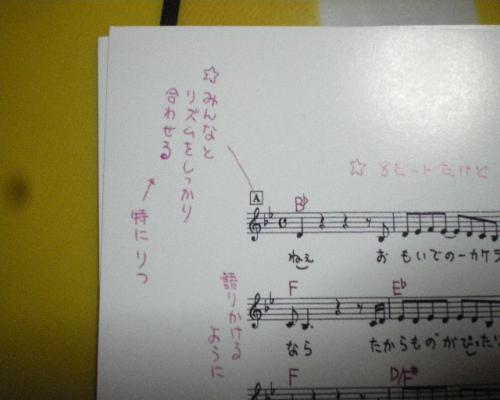 ☆みんなと
リズムをしっかり
合わせる
特にりつ
☆ 8ビートだけど
A
B♭
ねぇ おもいでのーカケラ
語りかける
ように
F E♭
なら たからものがぴったり
F D/F#